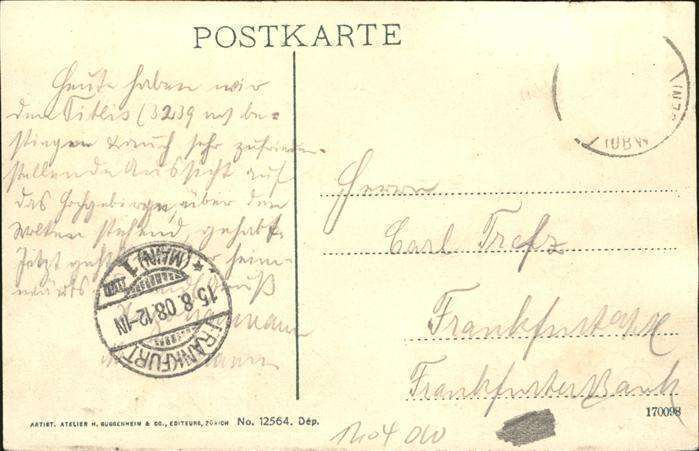 POSTKARTE
Heute haben wir
den Titlis (3239 m) be-
stiegen & auch sehr zufrieden-
stellende Aussicht auf
das Hochgebirge, über den
Wolken stehend, gehabt.
Jetzt geht es wieder heim-
wärts
Gruß
Herrn
Carl Trefz
Frankfurt a/M
Frankfurter Bank
FRANKFURT
(MAIN) 1
15.8.08.12-1N
ARTIST. ATELIER H. GUGGENHEIM & CO., EDITEURS, ZÜRICH No. 12564. Dép.
170098